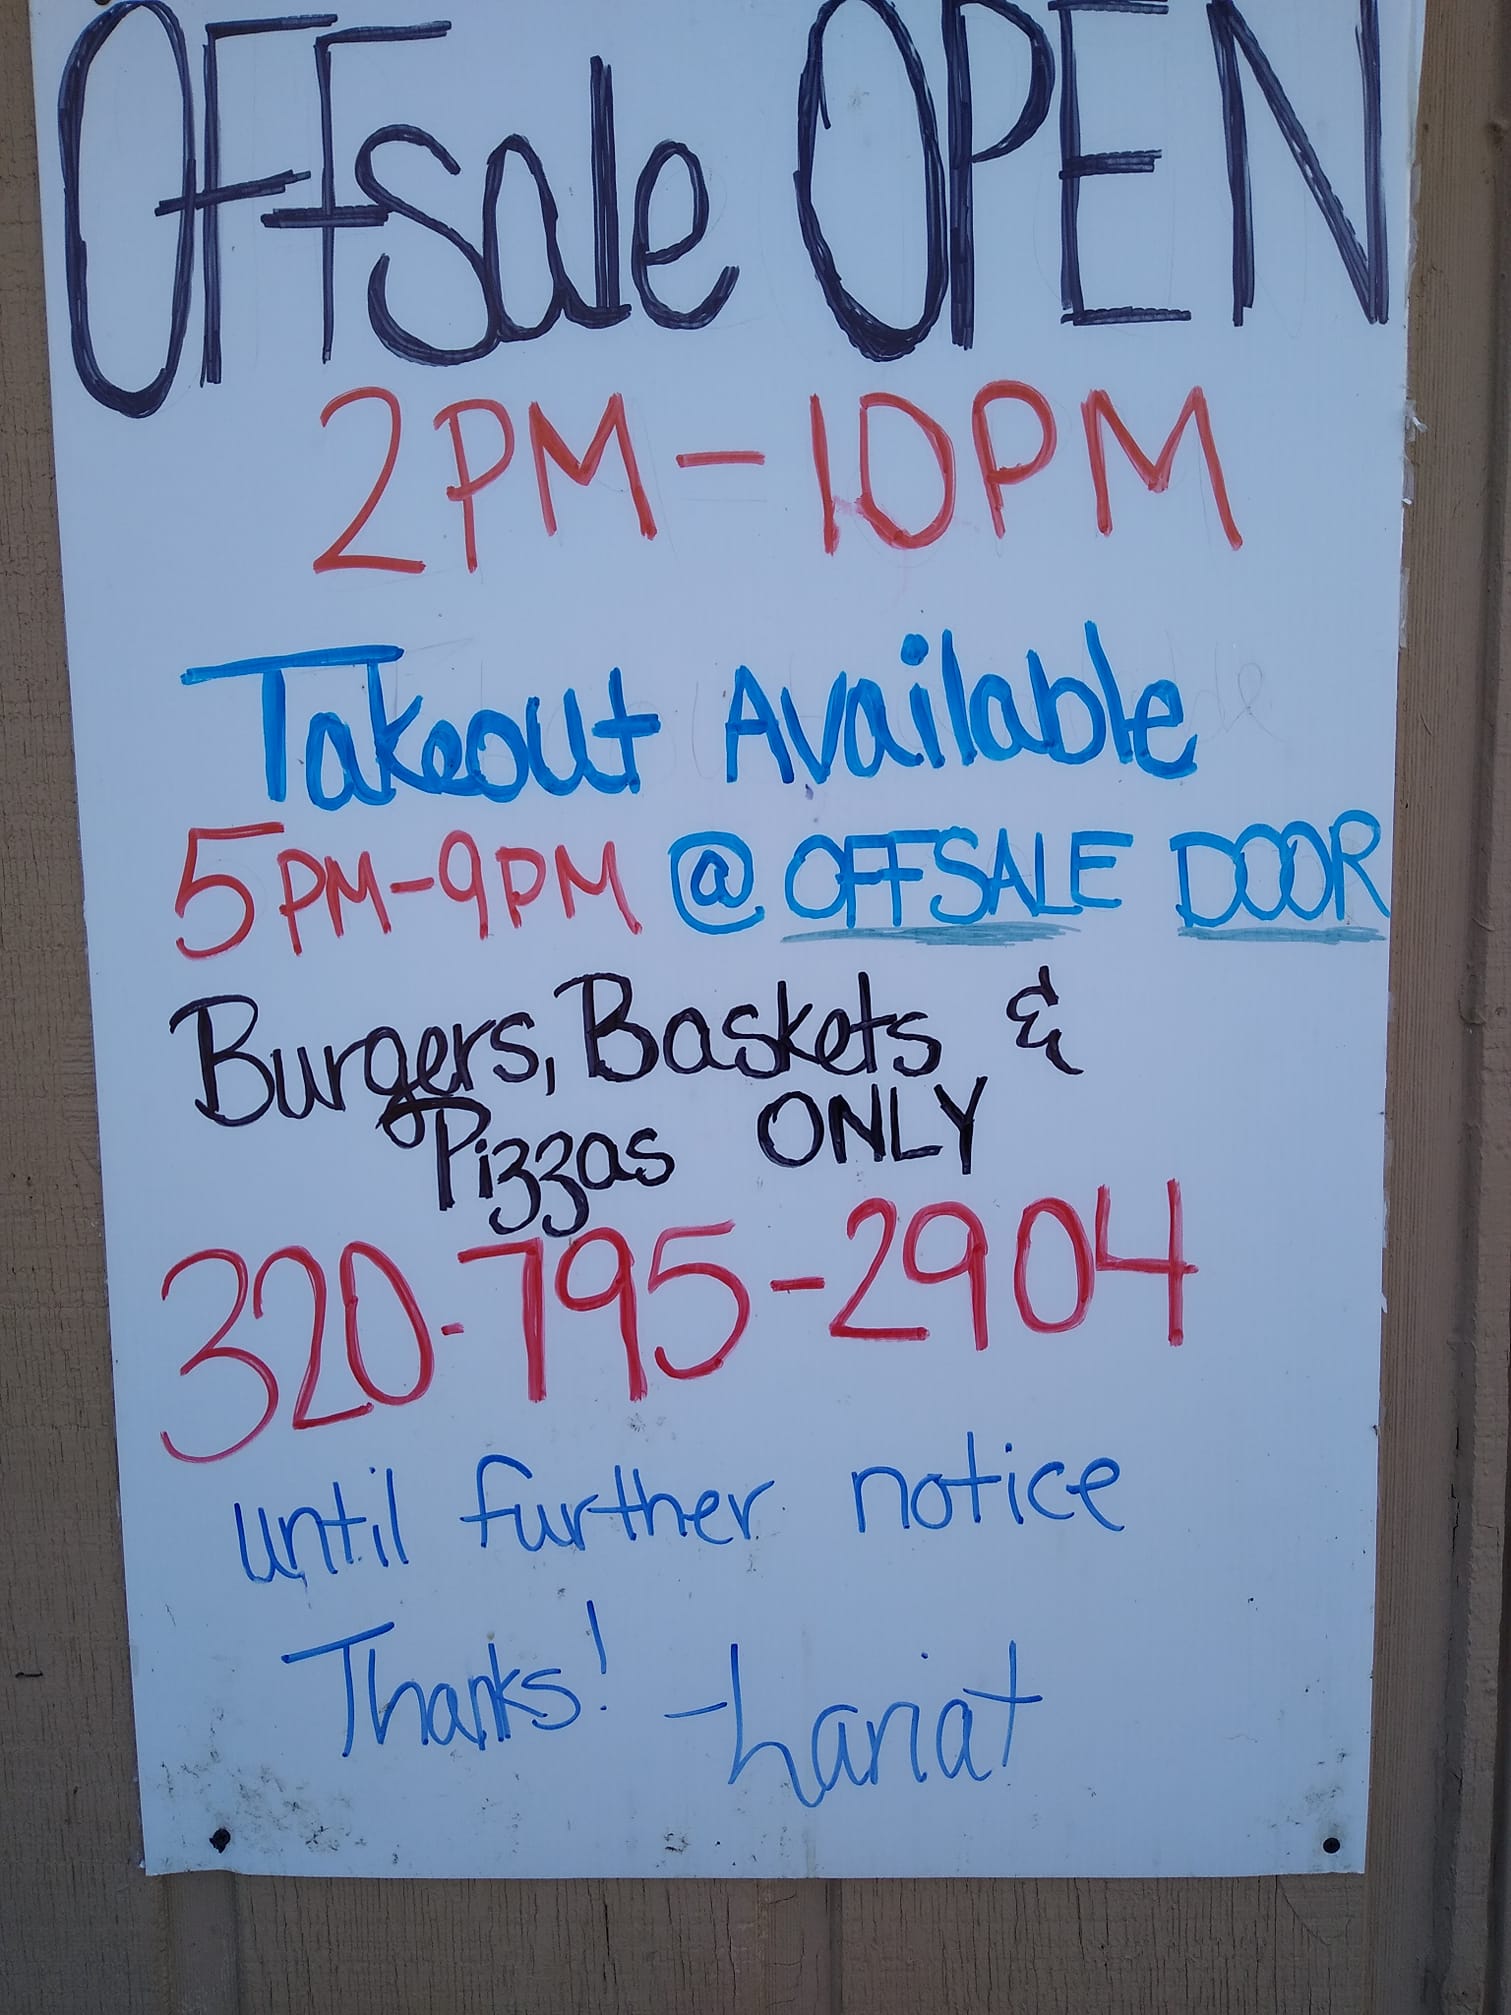 OFFsale OPEN
2PM-10PM
Takeout Available
5PM-9PM @ OFFSALE DOOR
Burgers, Baskets &
Pizzas ONLY
320-795-2904
until further notice
Thanks! -Lariat